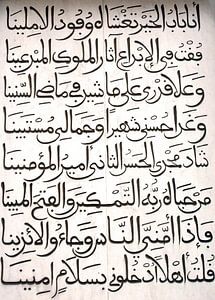 أنا باب الخير تغشاه وفود الاملينا
فقت في الإبداع آثار الملوك المبدعينا
وعلا قدري على ما شيد في ماضي السنينا
وغدا حسني شهيرا وجمالي مستبينا
شاد مجدي الحسن الثاني أمير المؤمنينا
من حباه ربه التمكين والفتح المبينا
فإذا أمني الناس وجاءوا لائذينا
قلت أهلا ادخلوني بسلام امنينا